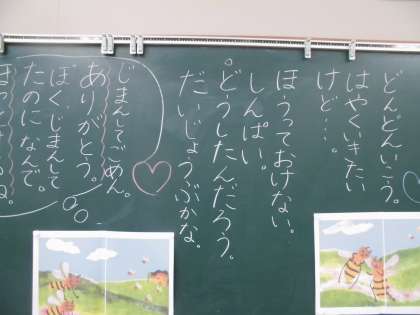 どんどんいこう。
はやくいきたい
けど…。
ほうっておけない。
しんぱい。
どうしたんだろう。
だいじょうぶかな。
じまんしてごめん。
ありがとう。
ぼく、じまんして
たのになんで。